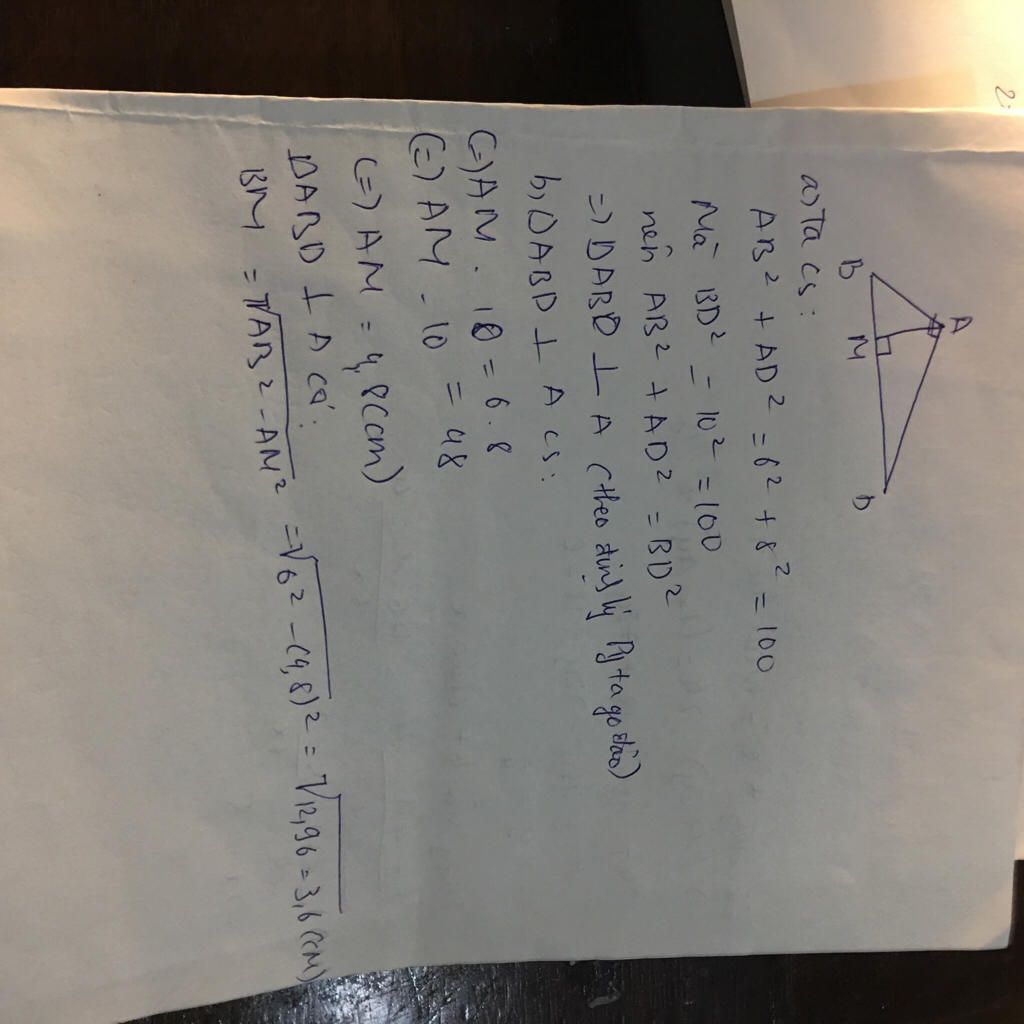 A
B
M
D
a) Ta có:
AB² + AD² = 6² + 8² = 100
Mà BD² = 10² = 100
nên AB² + AD² = BD²
=) ΔABD ⊥ A (theo định lý Pytago đảo)
b, ΔABD ⊥ A có:
(=) AM . 10 = 6.8
(=) AM . 10 = 48
(=) AM = 4,8 (cm)
ΔABD ⊥ A có:
BM = √AB² - AM² = √6² - (4,8)² = √12,96 = 3,6 (cm)
2.